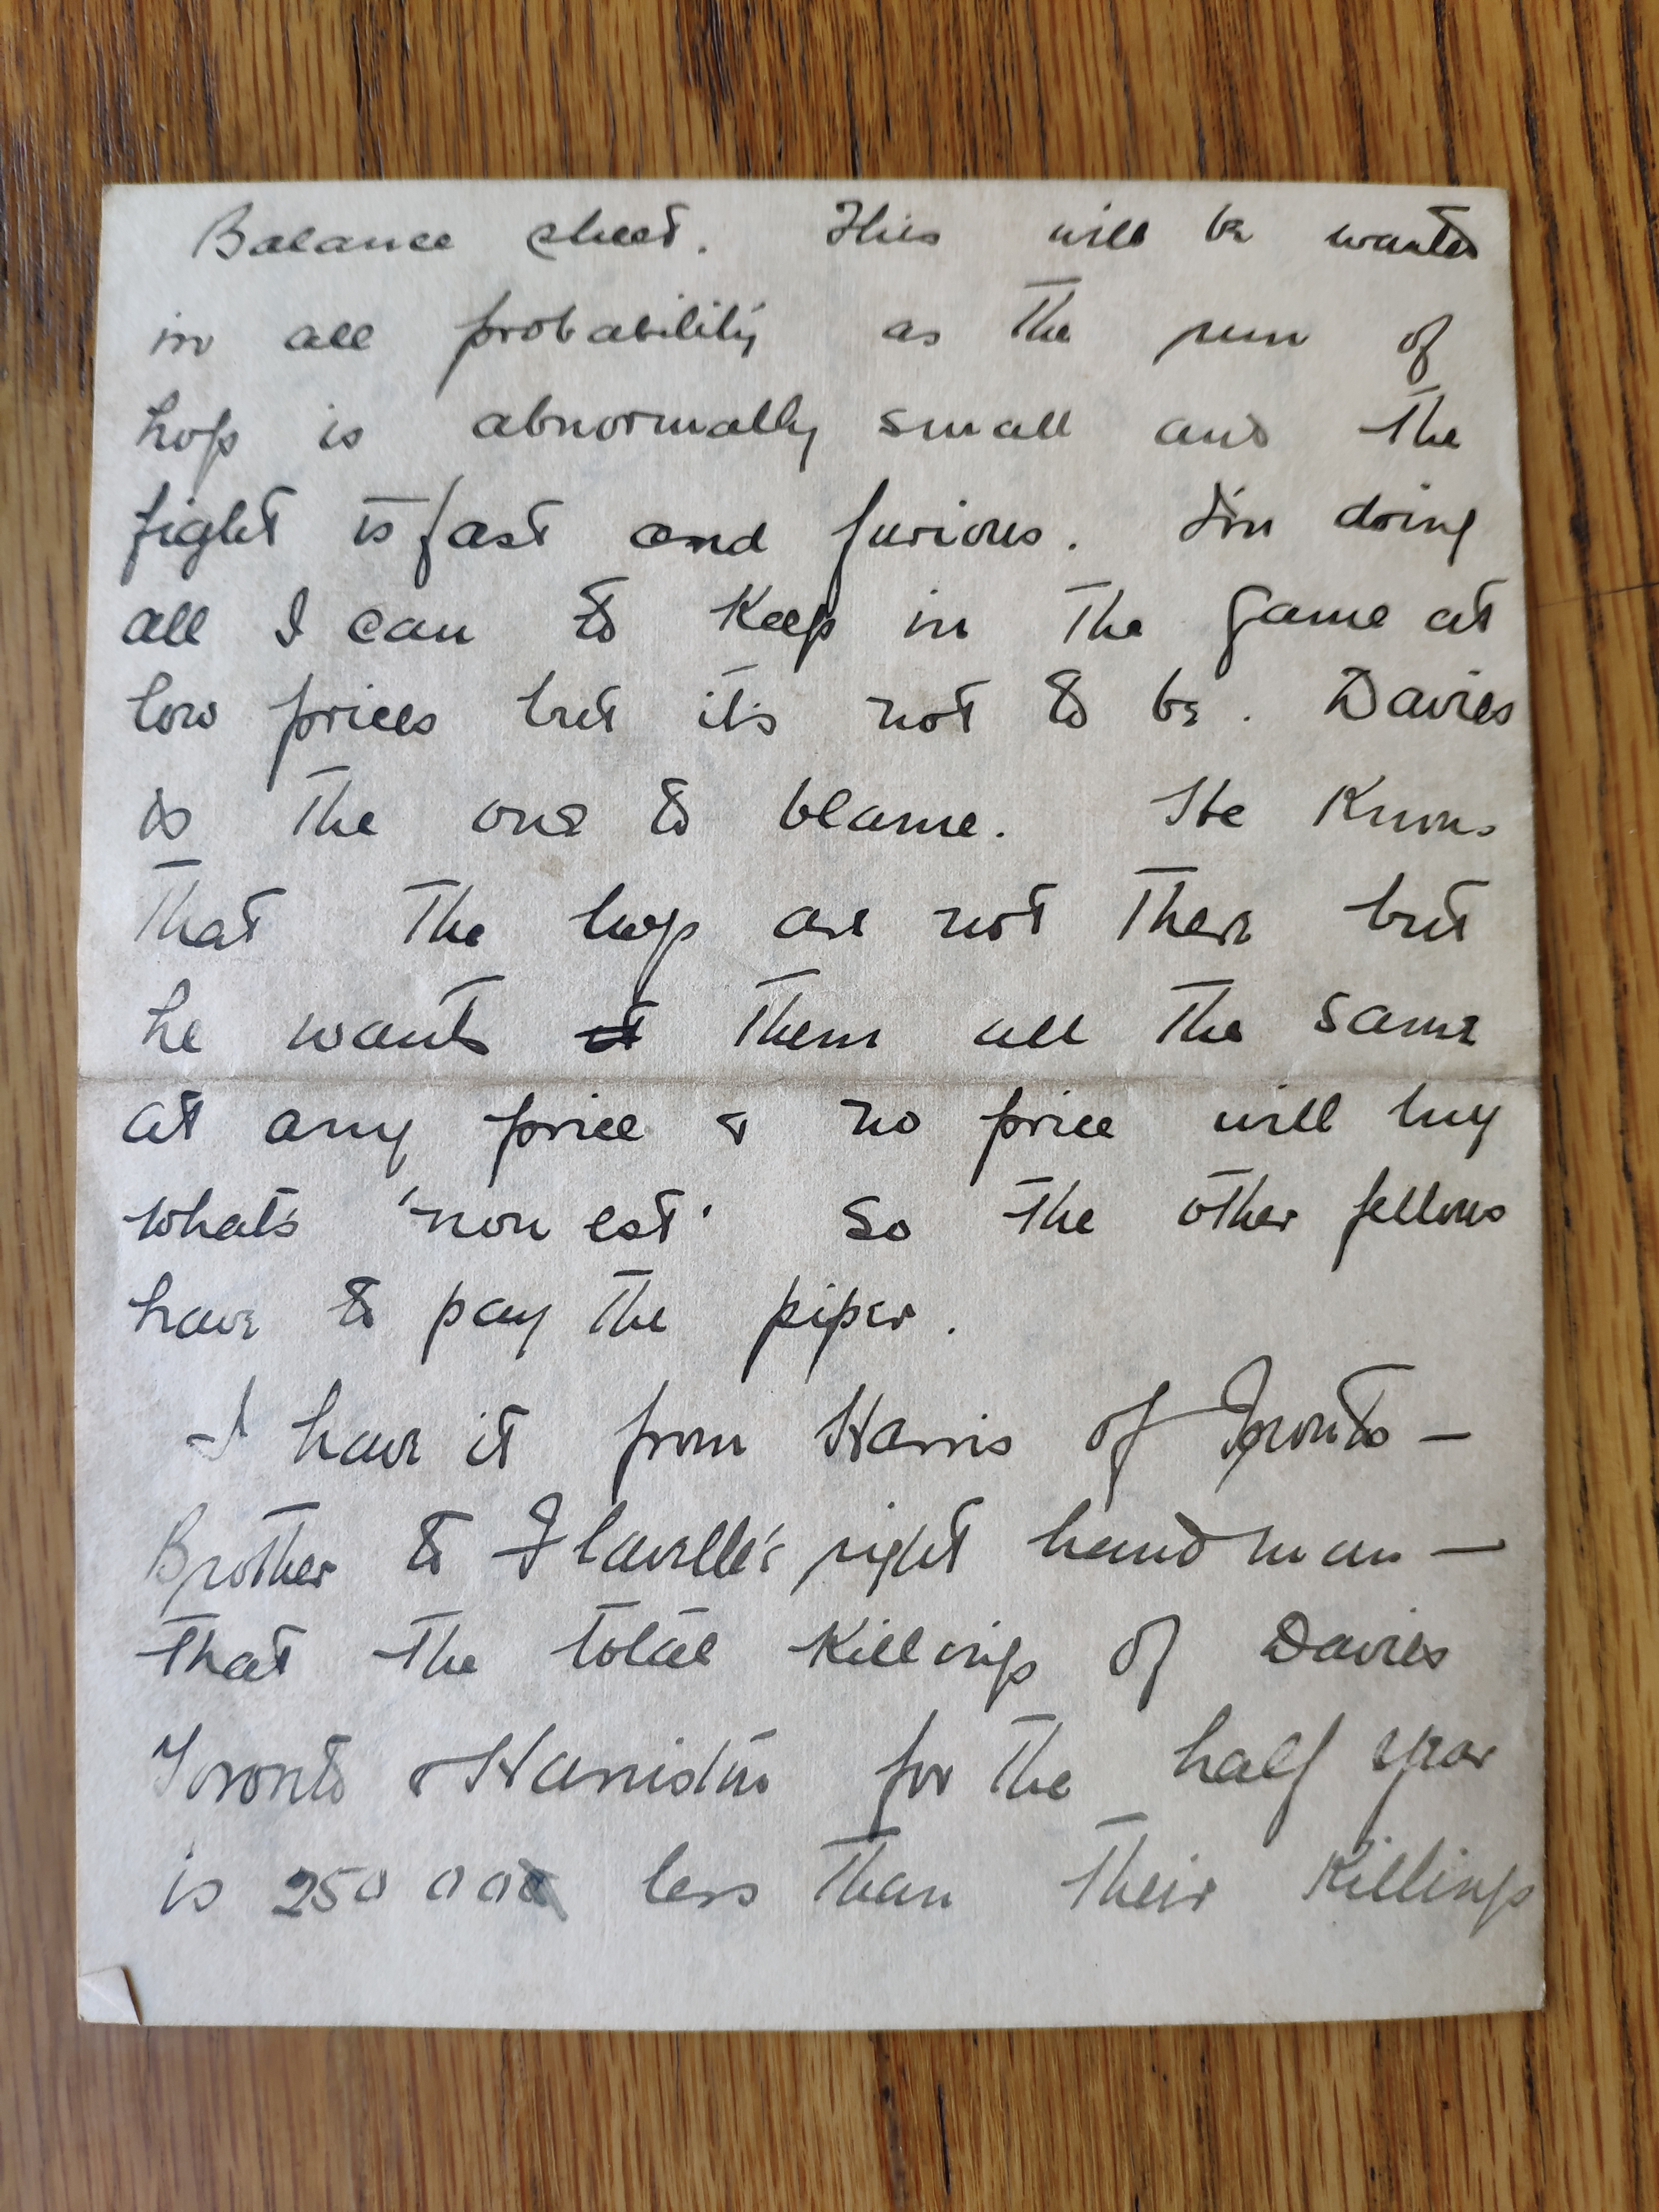 Balance sheet. This will be wanted
in all probability as the run of
hogs is abnormally small and the
fight is fast and furious. I'm doing
all I can to keep in the game at
low prices but it's not to be. Davies
is the one to blame. He knows
that the hogs are not there but
he wants it them all the same
at any price & no price will buy
what's 'non est' so the other fellows
have to pay the piper.
I have it from Harris of Toronto —
Brother to Flavelle's right hand man —
that the total killings of Davies
Toronto & Harriston for the half year
is 250 000 less than their killings